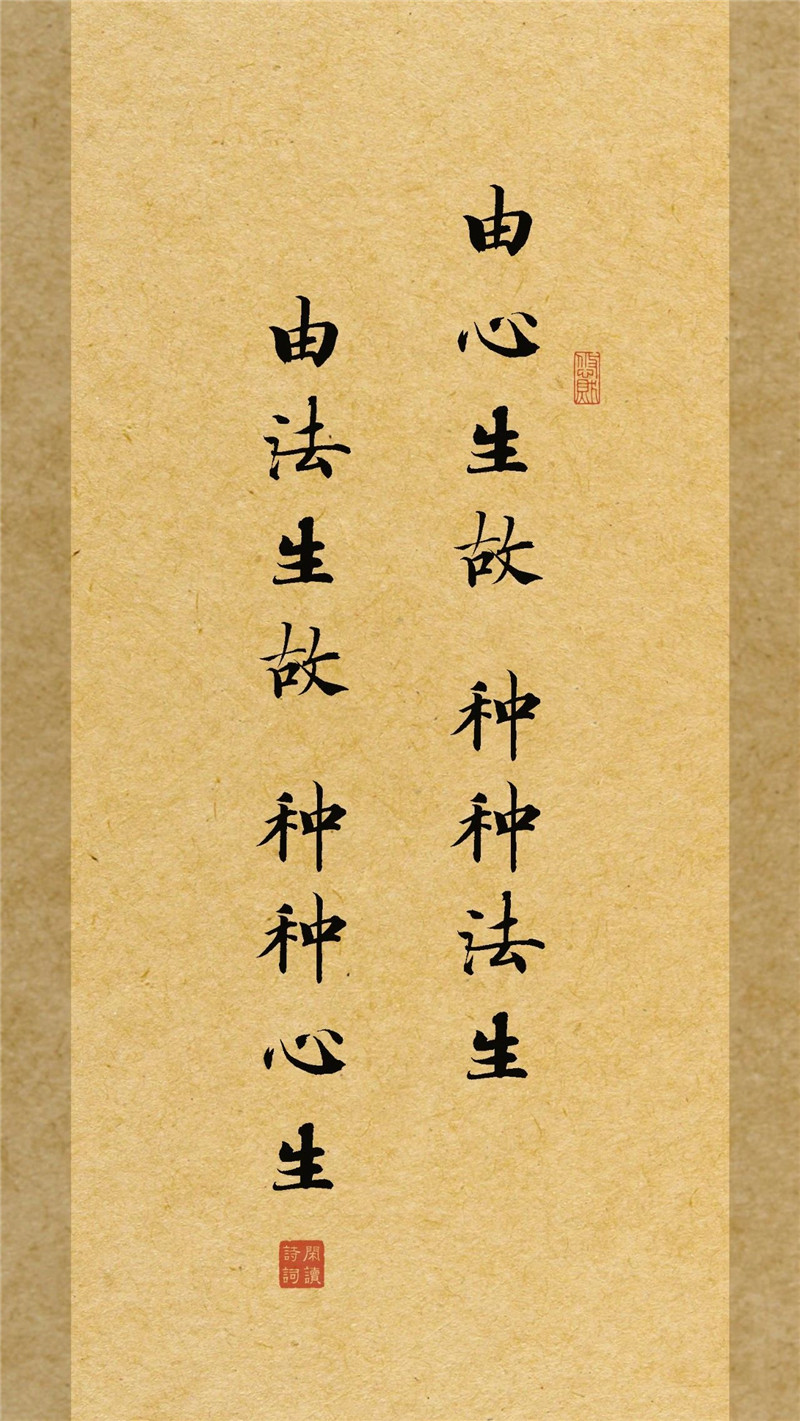 由心生故 种种法生
由法生故 种种心生
閑讀
詩詞